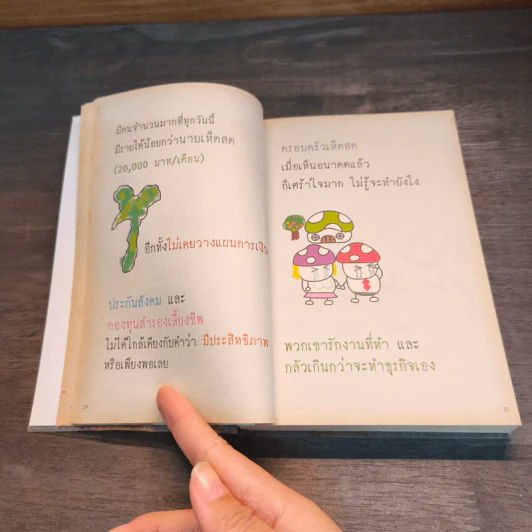 มีคนจำนวนมากที่ทุกวันนี้
มีรายได้น้อยกว่านายเห็ดสด
(20,000 บาท/เดือน)
อีกทั้งไม่เคยวางแผนการเงิน
ประกันสังคม และ
กองทุนสำรองเลี้ยงชีพ
ไม่ได้ใกล้เคียงกับคำว่า มีประสิทธิภาพ
หรือเพียงพอเลย
24
ครอบครัวเห็ดสด
เมื่อเห็นอนาคตแล้ว
ก็เศร้าใจมาก ไม่รู้จะทำยังไง
พวกเขารักงานที่ทำ และ
กลัวเกินกว่าจะทำธุรกิจเอง
25